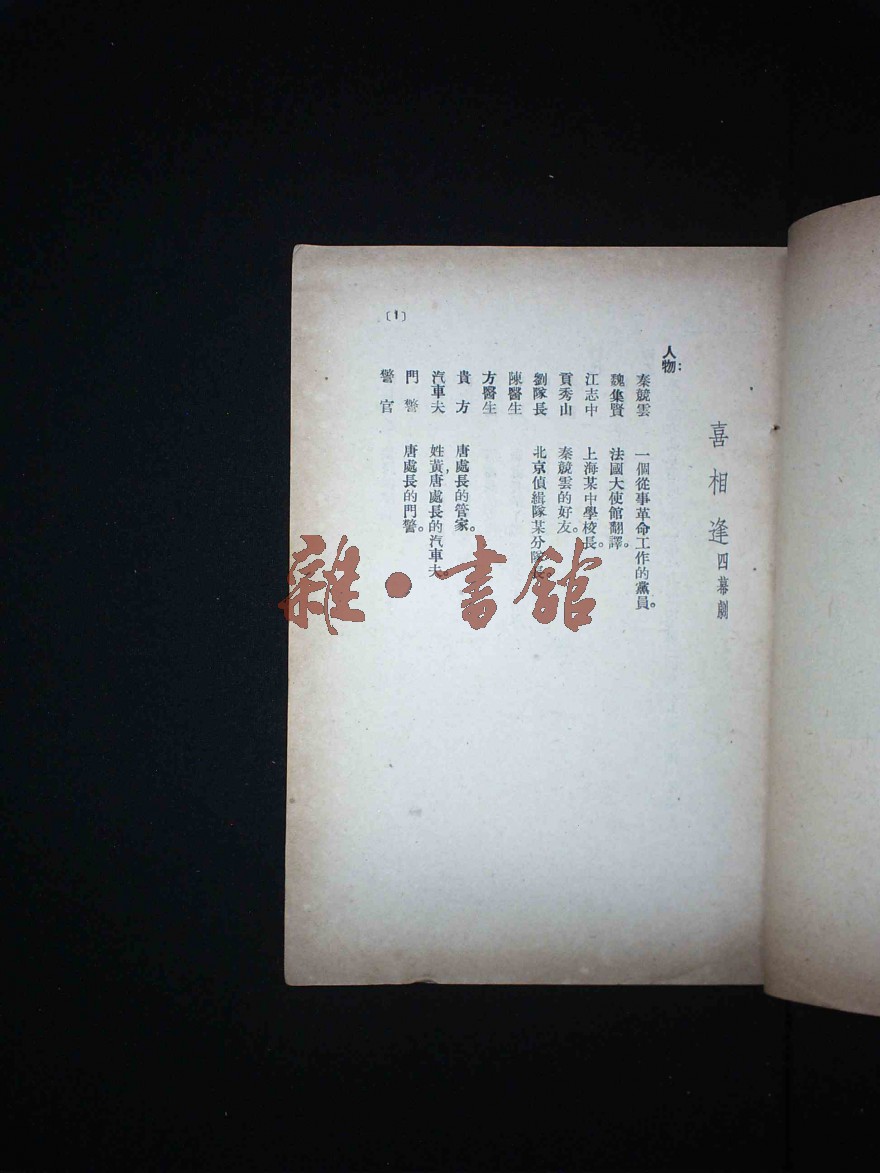 喜相逢 四幕劇
人物:
秦競雲 一個從事革命工作的黨員。
魏集賢 法國大使館翻譯。
江志中 上海某中學校長。
貢秀山 秦競雲的好友。
劉隊長 北京偵緝隊某分隊長
陳醫生
方醫生
貴方 唐處長的管家。
汽車夫 姓黃,唐處長的汽車夫。
門警 唐處長的門警。
警官
〔1〕
雜·書館